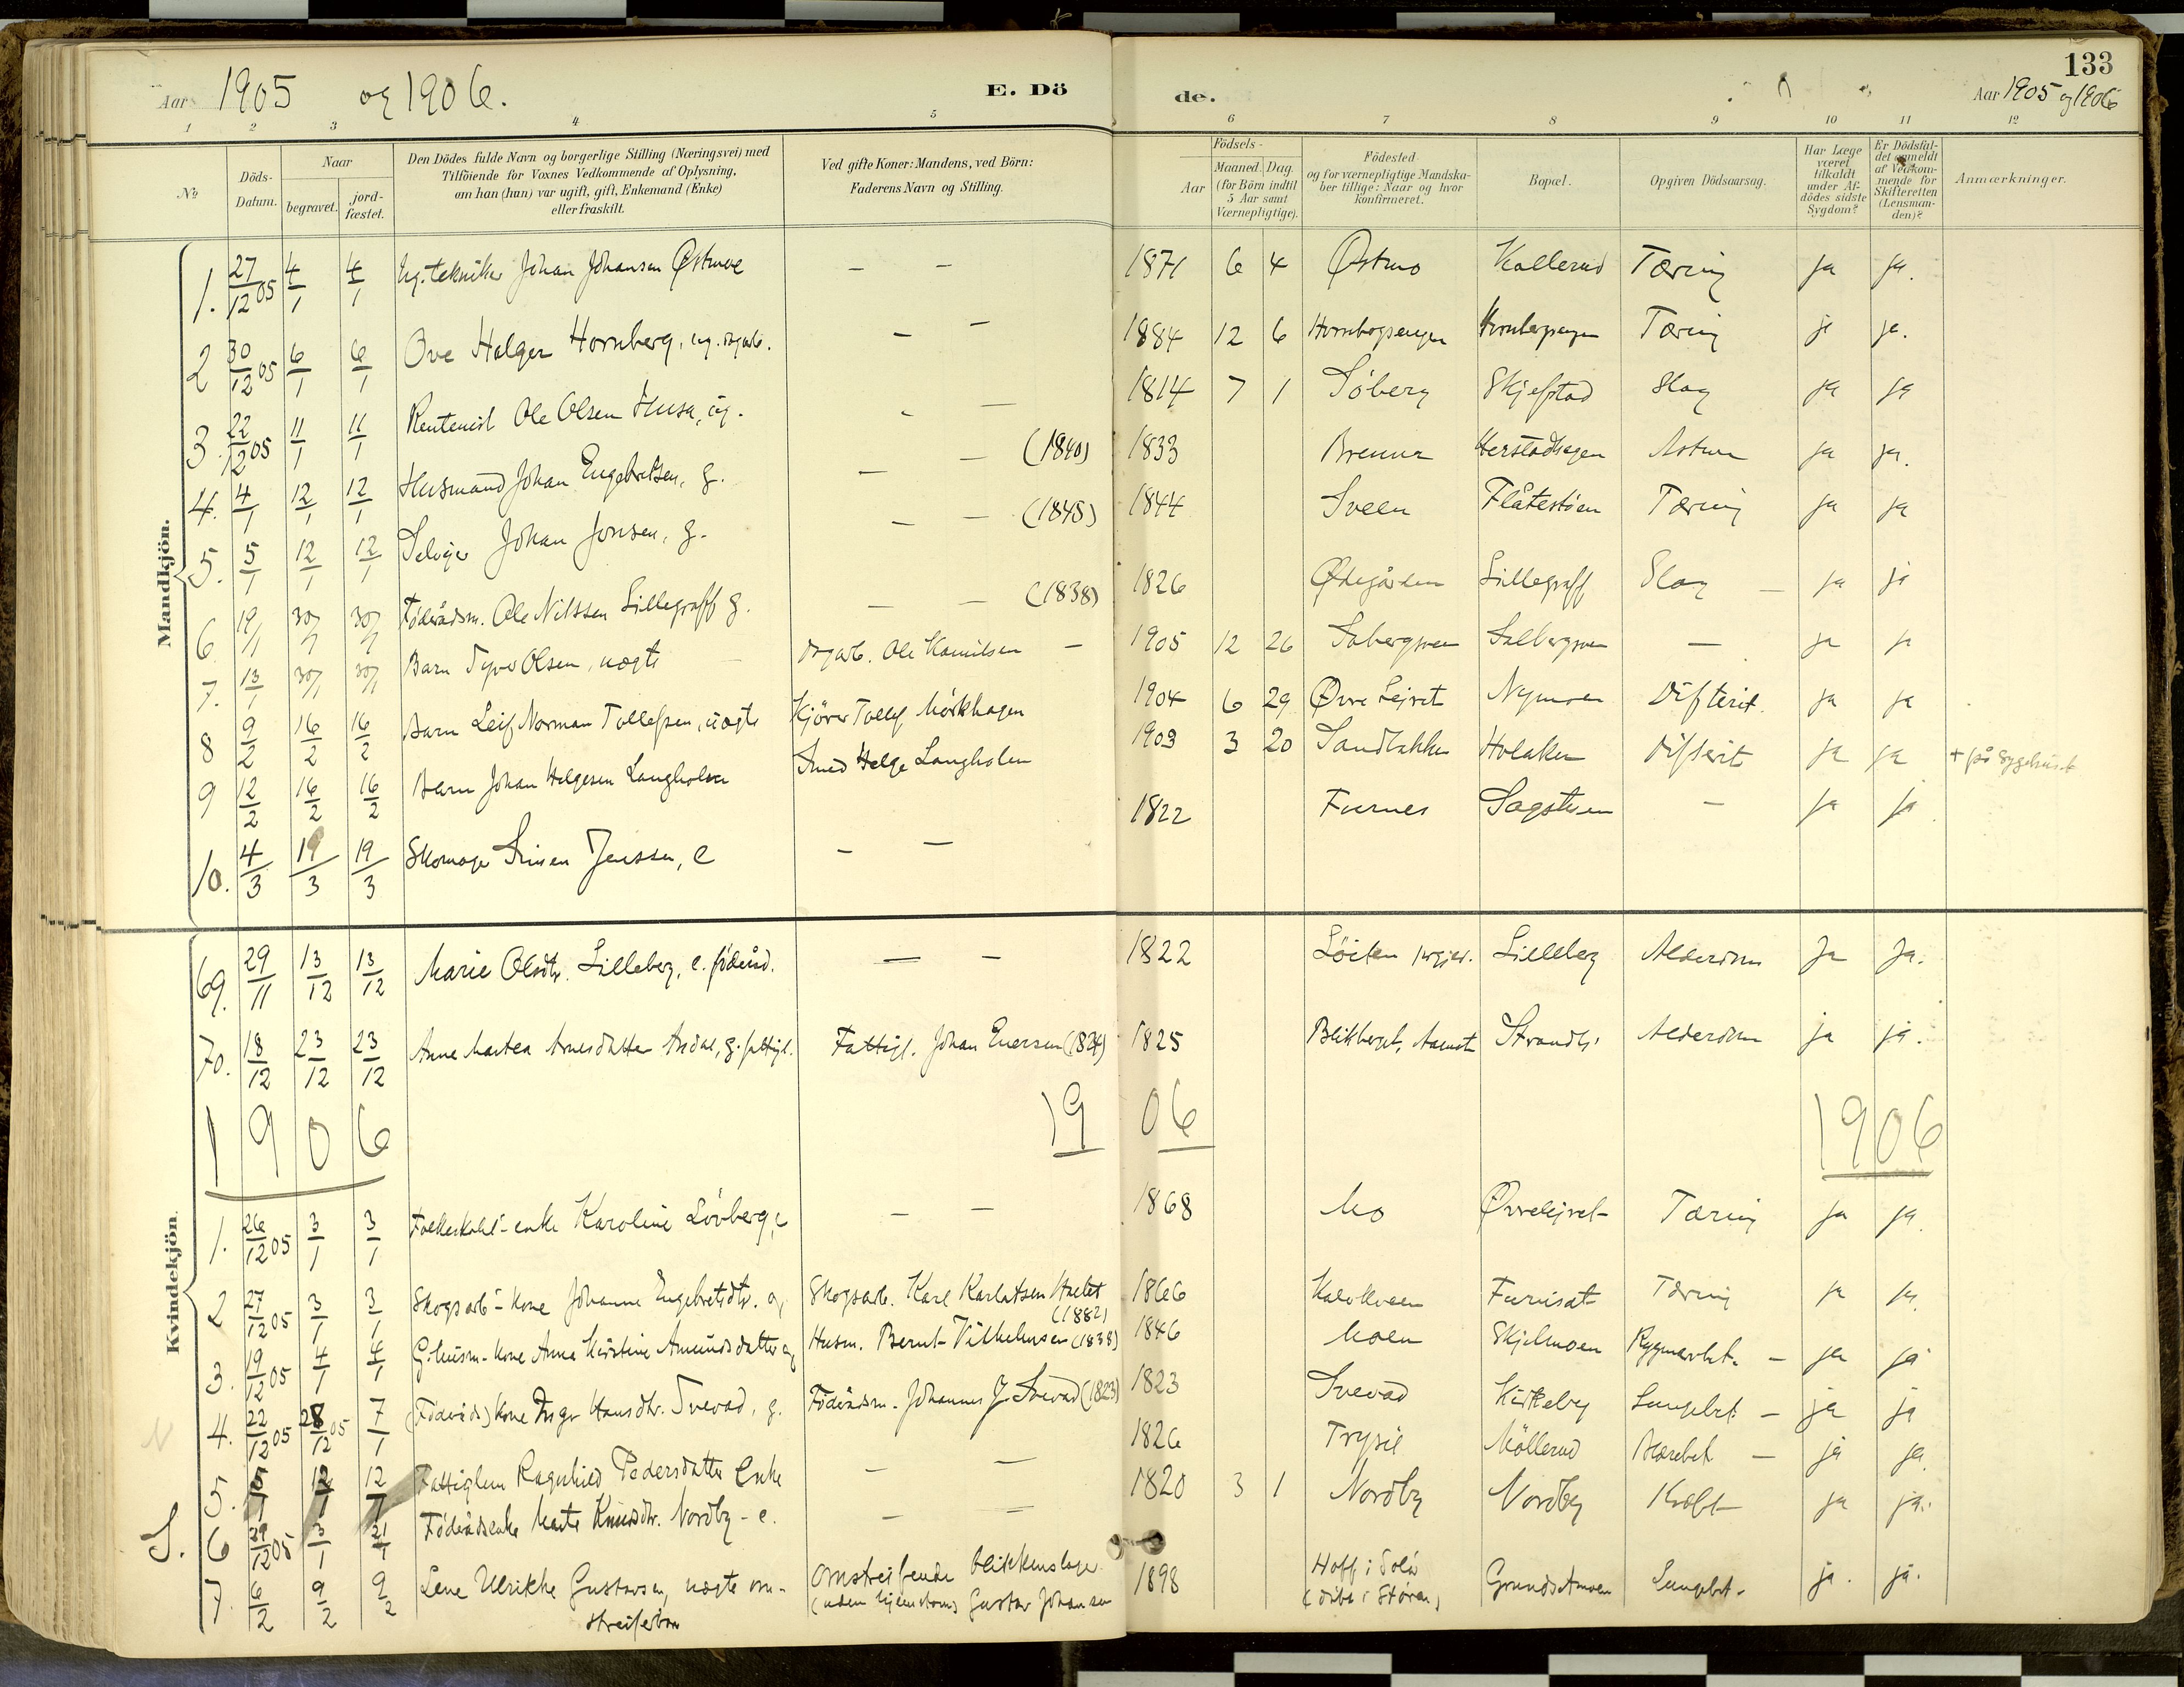 133
Aar 1905 og 1906. E. Dö de. Aar 1905 og 1906
1 2 3 4 5 6 7 8 9 10 11 12
No Döds-Datum. Naar begravet. jord-fæstet. Den Dödes fulde Navn og borgerlige Stilling (Næringsvei) med Tilföiende for Voxnes Vedkommende af Oplysning, om han (hun) var ugift, gift, Enkemand (Enke) eller fraskilt. Ved gifte Koner: Mandens, ved Börn: Faderens Navn og Stilling. Födsels- Aar Maaned. Dag. (for Börn indtil 5 Aar samt Værnepligtige). Födested og for værnepligtige Mandskaber tillige: Naar og hvor konfirmeret. Bopæl. Opgiven Dödsaarsag. Har Læge været tilkaldt under Afdödes sidste Sygdom? Er Dödsfaldet anmeldt af Vedkommende for Skifteretten (Lensmanden)? Anmærkninger.
Mandkjön.
1. 27/12 05 4/1 4/1 Johan Johansen Østmoe — — 1871 6 4 Østmo Kallerud Tæring ja ja.
2 30/12 05 6/1 6/1 Ove Holger Hornberg, ug. dagarb. — — 1884 12 6 Tæring ja ja.
3. 22/12 05 11/1 11/1 Rentenist Ole Olsen Husa, ug. — — 1814 7 1 Söberg Skjefstad Slag ja ja
4. 4/1 12/1 12/1 Husmand Johan Engebretsen, g. — — (1840) 1833 Brenna Herstadhagen Astma ja ja.
5. 5/1 12/1 12/1 Selveier Johan Jonsen, g. — — (1845) 1844 Sveen Flåtestöen Tæring ja ja
6. 19/1 30/1 30/1 Föderådsm. Ole Nilssen Lillegraff g. — — (1838) 1826 Ødegården Lillegraff Slag — ja ja
7. 13/1 30/1 30/1 Barn Syver Olsen, uægte dagarb. Ole — 1905 12 26 — ja ja
8 9/2 16/2 16/2 Barn Leif Norman Tollefsen, uægte Kjörer Tollef Mörkhagen 1904 6 29 Øvre Lejret Nymoen Difterit. ja ja
9 12/2 16/2 16/2 Barn Johan Helgesen Langholen Smed Helge Langholen 1903 3 20 Sandbakken Holaker Difterit ja ja + på Sygehuset
10. 4/3 19/3 19/3 Skomager Simen Jenssen, e — — 1822 Furnes Sagstuen — ja ja
Kvindekjön.
69. 29/11 13/12 13/12 Marie Olsdtr. Lilleberg, e. föderåd. — — 1822 Löiten Lilleberg Alderdom Ja Ja.
70. 18/12 23/12 23/12 Anne Martea Arnesdatter Asdal, g. fattigl. Fattigl. Johan Enersen (1824) 1825 Blikberget, Strandli Alderdom ja ja.
1906 1906 1906
1. 26/12 05 3/1 3/1 enke Karoline Lövberg, e — — 1868 Mo Øvrelejret Tæring ja ja.
2 27/12 05 3/1 3/1 Skogsarb-kone Johanne Engebretsdtr. og Skogsarb. Karl Karlatsen Haslet (1882) 1866 Kalvkveen Furuset Tæring ja ja.
3. 19/12 05 4/1 4/1 G. husm-kone Anne Kirstine Amundsdatter og Husm. Bernt Vilhelmsen (1838) 1846 Moen Skjelmoen Rygmarvbet. — ja ja
N 4. 22/12 05 28/12 05 7/1 (Föderåds) kone Inger Hansdtr. Svevad, g. Föderådsm. Johannes J. Svevad (1823) 1823 Svevad Kirkeby Lungebet. — ja ja
5. 12/1 12/1 Fattiglem Ragnhild Pedersdatter Enke — — 1826 Trysil Möllerud — ja ja
S. 6 29/12 05 3/1 21/1 Föderådsenke Marte Knudsdtr. Nordby - e. — — 1820 3 1 Nordby Nordby Kræft ja ja.
7. 6/2 9/2 9/2 Lene Ulrikke Gustavsen, uægte om- omstreifende blikkenslager 1898 Hoff i Solör Grundsetmoen Lungebet. ja. ja.
streiferbarn (uden hjemstavn) Gustav Johansen (döbt i Stören)